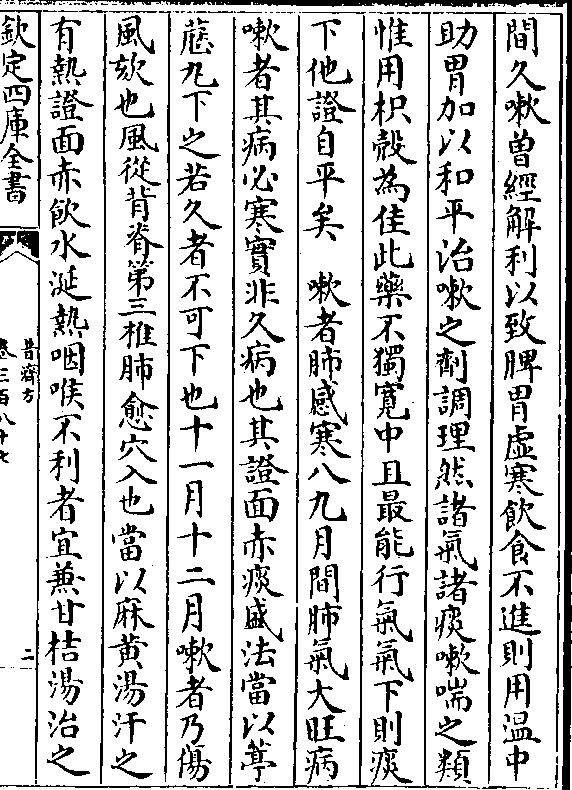 間久嗽曾經解利以致脾胃虛寒飲食不進則用溫中
助胃加以和平治嗽之劑調理然諸氣諸痰嗽喘之類
惟用枳殼為佳此藥不獨寛中且最能行氣氣下則痰
下他證自平矣　嗽者肺感寒八九月間肺氣大旺病
嗽者其病必寒實非久病也其證面赤痰盛法當以葶
藶丸下之若久者不可下也十一月十二月嗽者乃傷
風欬也風從背脊第三椎肺愈穴入也當以麻黄湯汗之
有熱證面赤飲水涎熱咽喉不利者宜兼甘桔湯治之
欽定四庫全書
普濟方
卷三百八十七
二